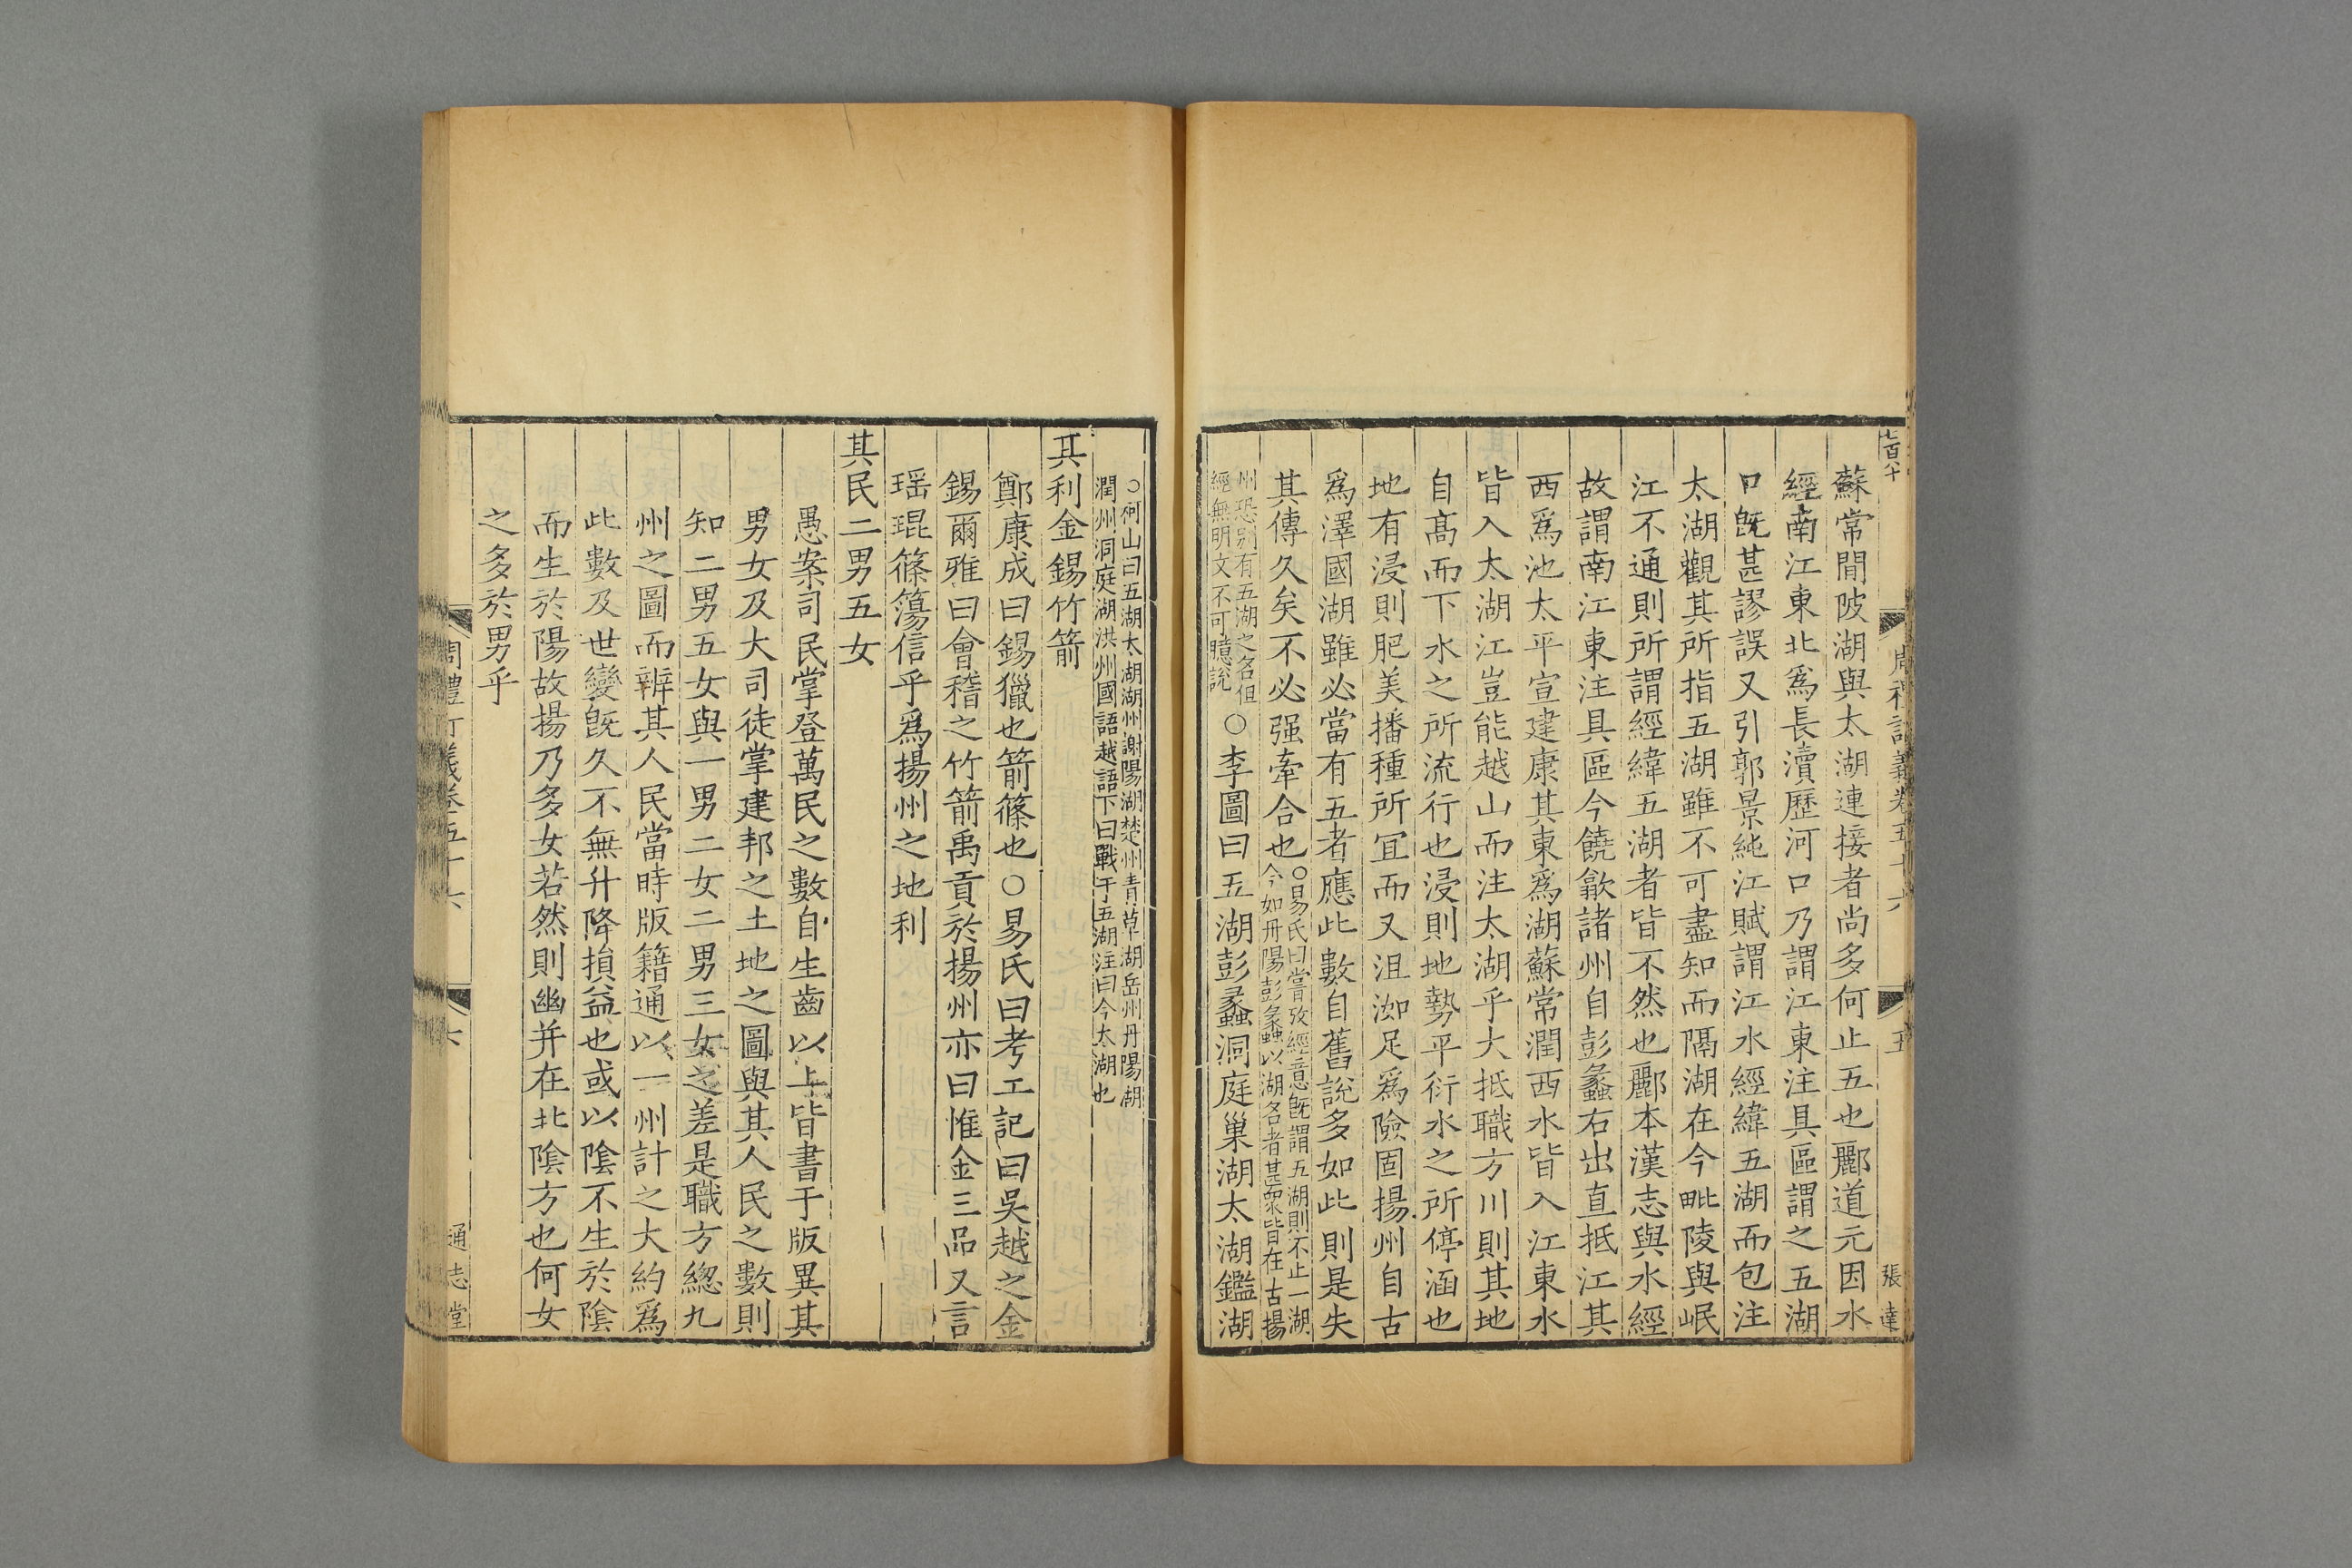 蘇常閒陂湖與太湖連接者尚多何止五也酈道元因水
經南江東北爲長瀆歷河口乃謂江東注具區謂之五湖
口旣甚謬誤又引郭景純江賦謂江水經緯五湖而包注
太湖觀其所指五湖雖不可盡知而隔湖在今毗陵與岷
江不通則所謂經緯五湖者皆不然也酈本漢志與水經
故謂南江東注具區今饒歙諸州自彭蠡右出直抵江其
西爲池太平宣建康其東爲湖蘇常潤西水皆入江東水
皆入太湖江豈能越山而注太湖乎大抵職方川則其地
自髙而下水之所流行也浸則地勢平衍水之所停涵也
地有浸則肥美播種所冝而又沮洳足爲險固揚州自古
爲澤國湖雖必當有五者應此數自舊說多如此則是失
其傳久矣不必强牽合也
○易氏曰嘗攷經意旣謂五湖則不止一湖
今如丹陽彭蠡以湖名者甚衆皆在古揚
州恐别有五湖之名但
經無明文不可臆說
○李圖曰五湖彭蠡洞庭巢湖太湖鑑湖
○柯山曰五湖太湖湖州謝陽湖楚州青草湖岳州丹陽湖
潤州洞庭湖洪州國語越語下曰戰于五湖注曰今太湖也
其利金錫竹箭
鄭康成曰錫鑞也箭篠也○易氏曰考工記曰吳越之金
錫爾雅曰會稽之竹箭禹貢於揚州亦曰惟金三品又言
瑶琨篠簜信乎爲揚州之地利
其民二男五女
愚案司民掌登萬民之數自生齒以上皆書于版異其
男女及大司徒掌建邦之土地之圖與其人民之數則
知二男五女與一男二女二男三女之差是職方緫九
州之圖而辨其人民當時版籍通以一州計之大約爲
此數及世變旣久不無升降損益也或以陰不生於陰
而生於陽故揚乃多女若然則幽并在北陰方也何女
之多於男乎
五
張達
通志堂